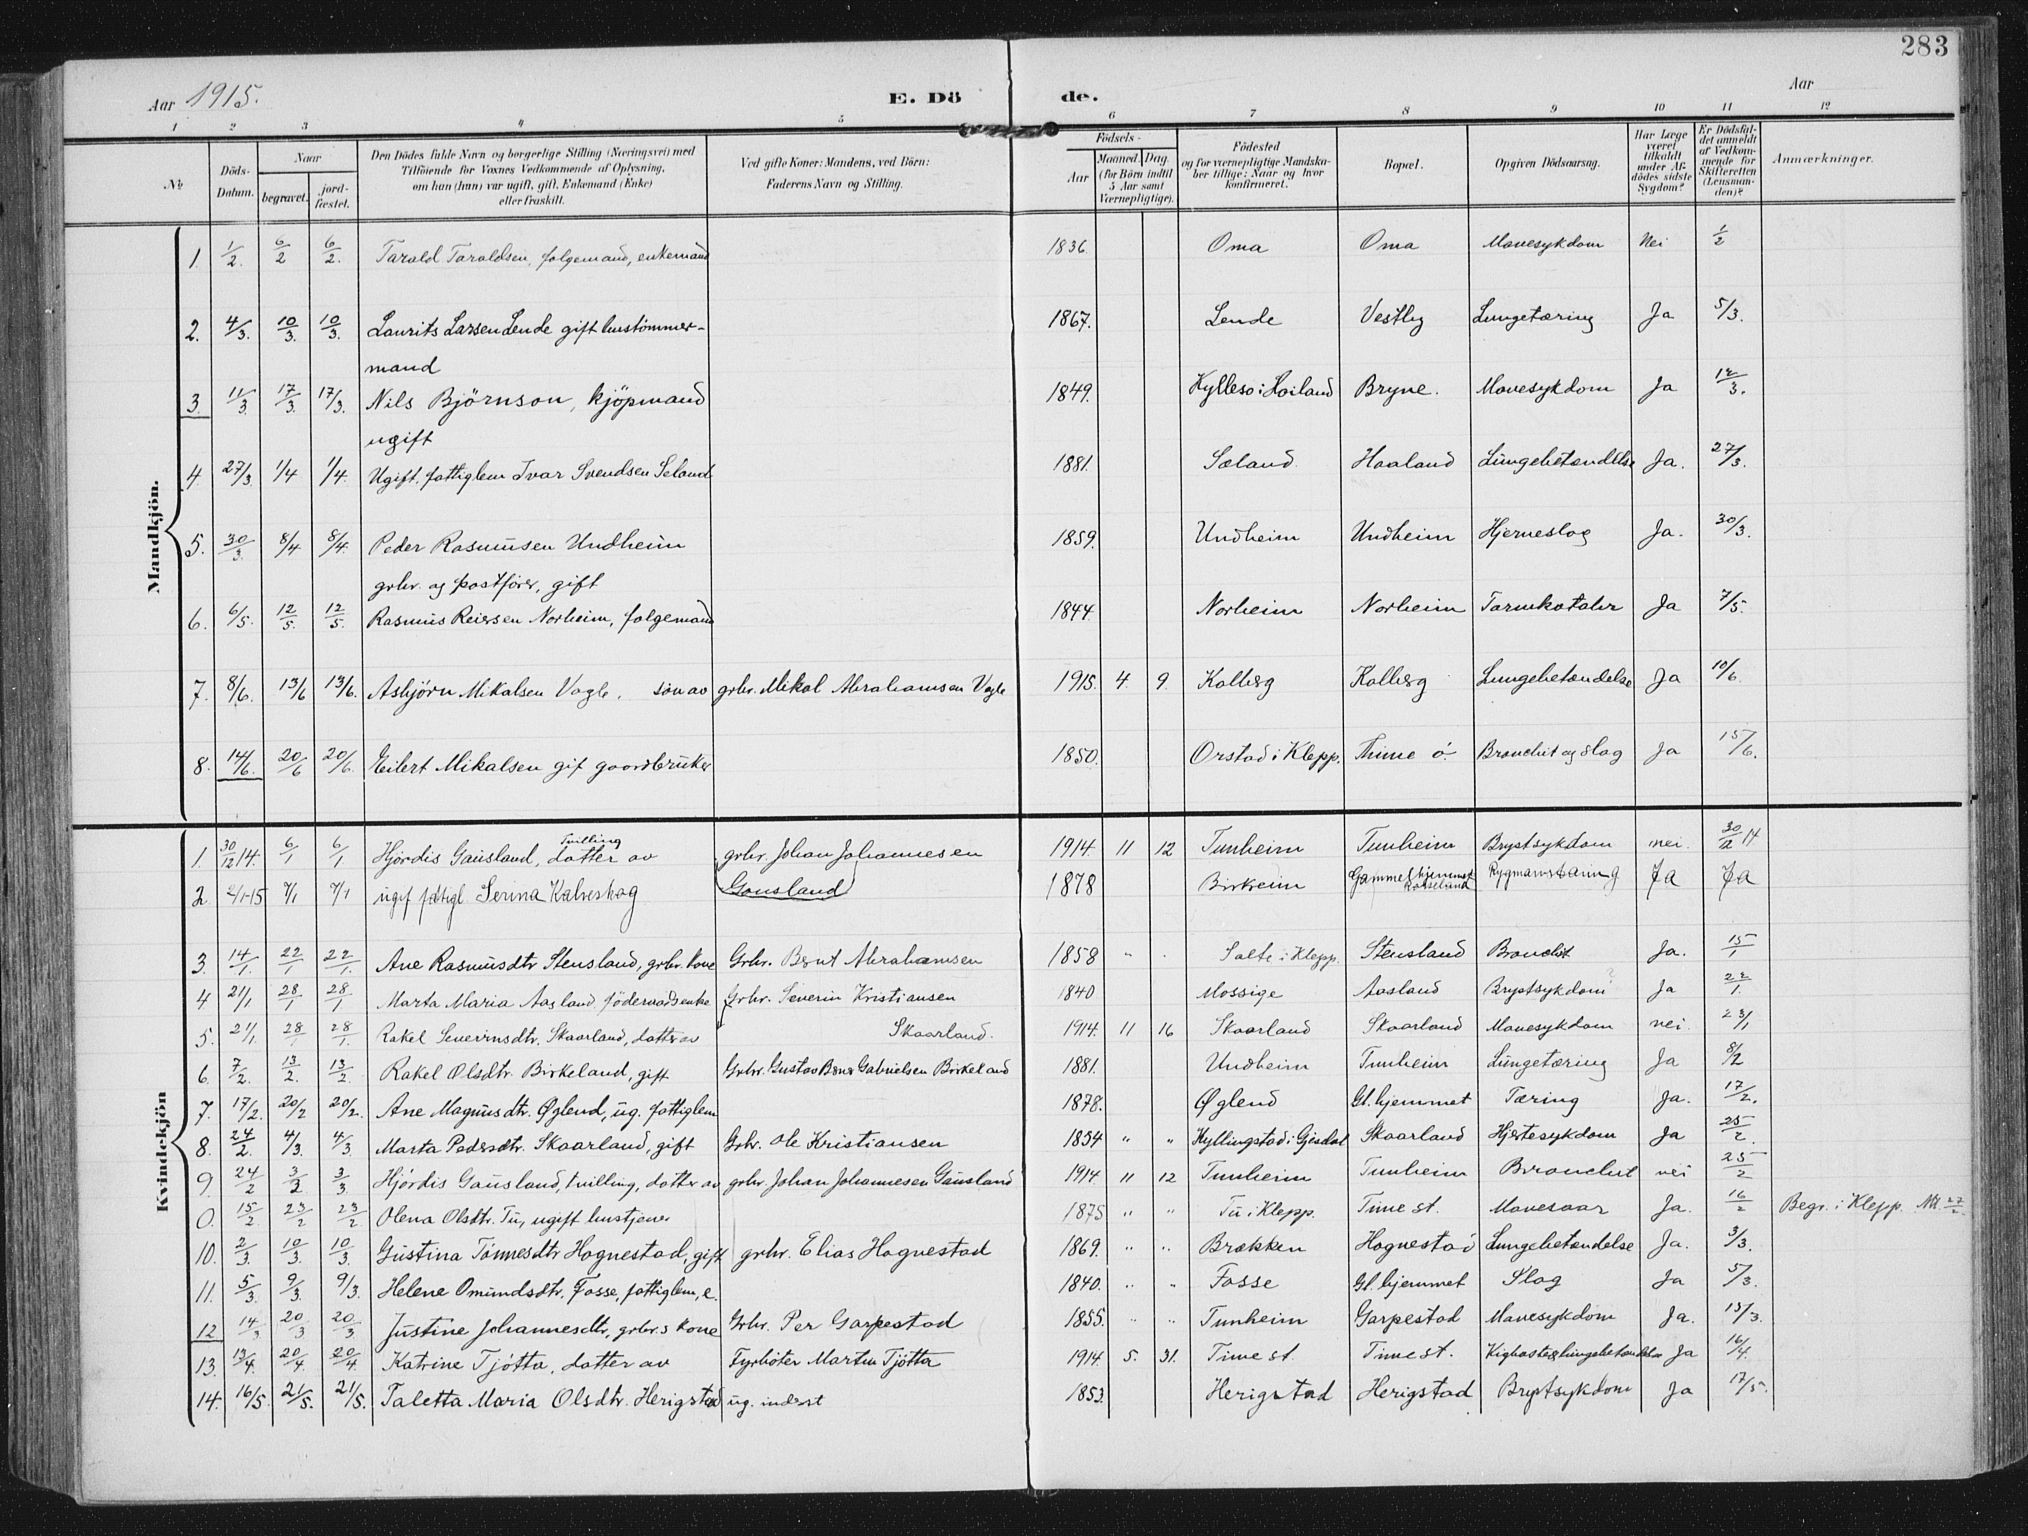 283
Aar 1915. E. Dö de. Aar
1 2 3 4 5 6 7 8 9 10 11 12
№
Döds-Datum.
Naar
begravet.
jord-fæstet.
Den Dödes fulde Navn og borgerlige Stilling (Næringsvei) med
Tilföiende for Voxnes Vedkommende af Oplysning,
om han (hun) var ugift, gift, Enkemand (Enke)
eller fraskilt.
Ved gifte Koner: Mandens, ved Börn:
Faderens Navn og Stilling.
Födsels-
Aar
Maaned. Dag.
(for Börn indtil
5 Aar samt
Værnepligtige).
Födested
og for værnepligtige Mandska-
ber tillige: Naar og hvor
konfirmeret.
Bopæl.
Opgiven Dödsaarsag.
Har Læge
været
tilkaldt
under Af-
dödes sidste
Sygdom?
Er Dödsfal-
det anmeldt
af Vedkom-
mende for
Skifteretten
(Lensman-
den)?
Anmærkninger.
Mandkjön.
1. 1/2. 6/2 6/2. Tarald Taraldsen, folgemand, enkemand 1836. Oma Oma Mavesykdom Nei 1/2
2. 4/3. 10/3. 10/3. Laurits Larsen Lende gift hustömmer- 1867. Lende Vestly Lungetæring Ja 5/3.
mand
3. 11/3 17/3. 17/3. Nils Björnson, kjöpmand 1849. Kyllesø i Høiland Bryne. Mavesykdom Ja 12/3.
ugift
4. 27/3. 1/4 1/4. Ugift. fattiglem Ivar Svendsen Seland 1881. Sæland Haaland Lungebetændelse Ja. 27/3.
5. 30/3 8/4 8/4. Peder Rasmusen Undheim 1859. Undheim Undheim Hjerneslag Ja. 30/3.
grbr. og postfører, gift
6. 6/5. 12/5. 12/5. Rasmus Reiersen Norheim, folgemand 1844. Norheim Norheim Tarmkatahr Ja 7/5.
7. 8/6. 13/6 13/6. Asbjörn Mikalsen Vagle. søn av grbr. Mikal Abrahamsen Vagle 1915. 4. 9. Kalberg Kalberg Lungebetændelse Ja 10/6.
8. 14/6. 20/6 20/6. Eilert Mikalsen gif gaardbruker 1850. Orstad i Klepp. Thime ö. Bronchit og slag Ja 15/6.
Kvindekjön
1. 30/12 14. 6/1 6/1 Hjördis Gausland, Tvilling datter av grbr. Johan Johannesen 1914. 11 12 Tunheim Tunheim Brystsykdom nei. 30/12 14
2. 2/1-15 7/1 7/1 ugif fattigl. Serina Kalveskag Gausland 1878 Birkeim Gammelhjemmet Rosseland Rygmarvstæring Ja Ja
3. 14/1. 22/1 22/1. Ane Rasmusdtr Stensland, grbr. kone Grbr. Bernt Abrahamsen 1858 " . Salte i Klepp. Stensland Bronchit Ja. 15/1
4 21/1 28/1 28/1 Marta Maria Aasland föderaadsenke Grbr. Severin Kristiansen 1840 Mossige Aasland Brystsykdom Ja 22/1.
5. 21/1. 28/1 28/1. Rakel Severinsdtr. Skaarland, datter av Skaarland. 1914. 11 16 Skaarland Skaarland Mavesykdom nei. 23/1
6. 7/2. 13/2. 13/2. Rakel Olsdtr. Birkeland, gift Grbr. Gustav Gabrielsen Birkeland 1881. Undheim Tunheim Lungetæring Ja 8/2
7. 17/2. 20/2 20/2. Ane Magnusdtr. Øglend, ug. fattiglem 1878. Øglend Gl. hjemmet Tæring Ja. 17/2.
8. 24/2. 4/3. 4/3. Marta Pedersdtr. Skaarland, gift Grbr. Ole Kristiansen 1834 " " Kyllingstad i Gjesdal Skaarland Hjertesykdom Ja 25/2.
9. 24/2 3/3 3/3. Hjördis Gausland, tvilling, datter av grbr. Johan Johannesen Gausland 1914 11 12 Tunheim Tunheim Bronchit nei 25/2
0. 15/2 23/2 23/2 Olena Olsdtr. Tu, ugift hustjener 1875 " " Tu i Klepp. Time st. Mavesaar Ja. 16/2 Begr. i Klepp. 27/2.
10. 2/3. 10/3. 10/3. Gustina Tönnesdtr Hognestad, gift grbr. Elias Hognestad 1869. " " Brækken Hognestad Lungebetændelse Ja. 3/3.
11. 5/3. 9/3. 9/3. Helene Omundsdtr. Fosse, fattiglem, e. 1840. " " Fosse Gl. hjemmet Slag Ja 5/3.
12 14/3 20/3 20/3 Justine Johannesdtr, grbr.s kone Grbr. Per Garpestad 1855. " " Tunheim Garpestad Mavesykdom Ja. 15/3.
13. 13/4. 20/4. 20/4. Katrine Tjötta, datter av Fyrböter Martin Tjötta 1914. 5. 31. Time st. Time st. Kighoste & lungebetændelse Ja 16/4.
14. 16/5. 21/5. 21/5. Taletta Maria Olsdtr. Herigstad ug. inderst 1853. Herigstad Herigstad Brystsykdom Ja 17/5.